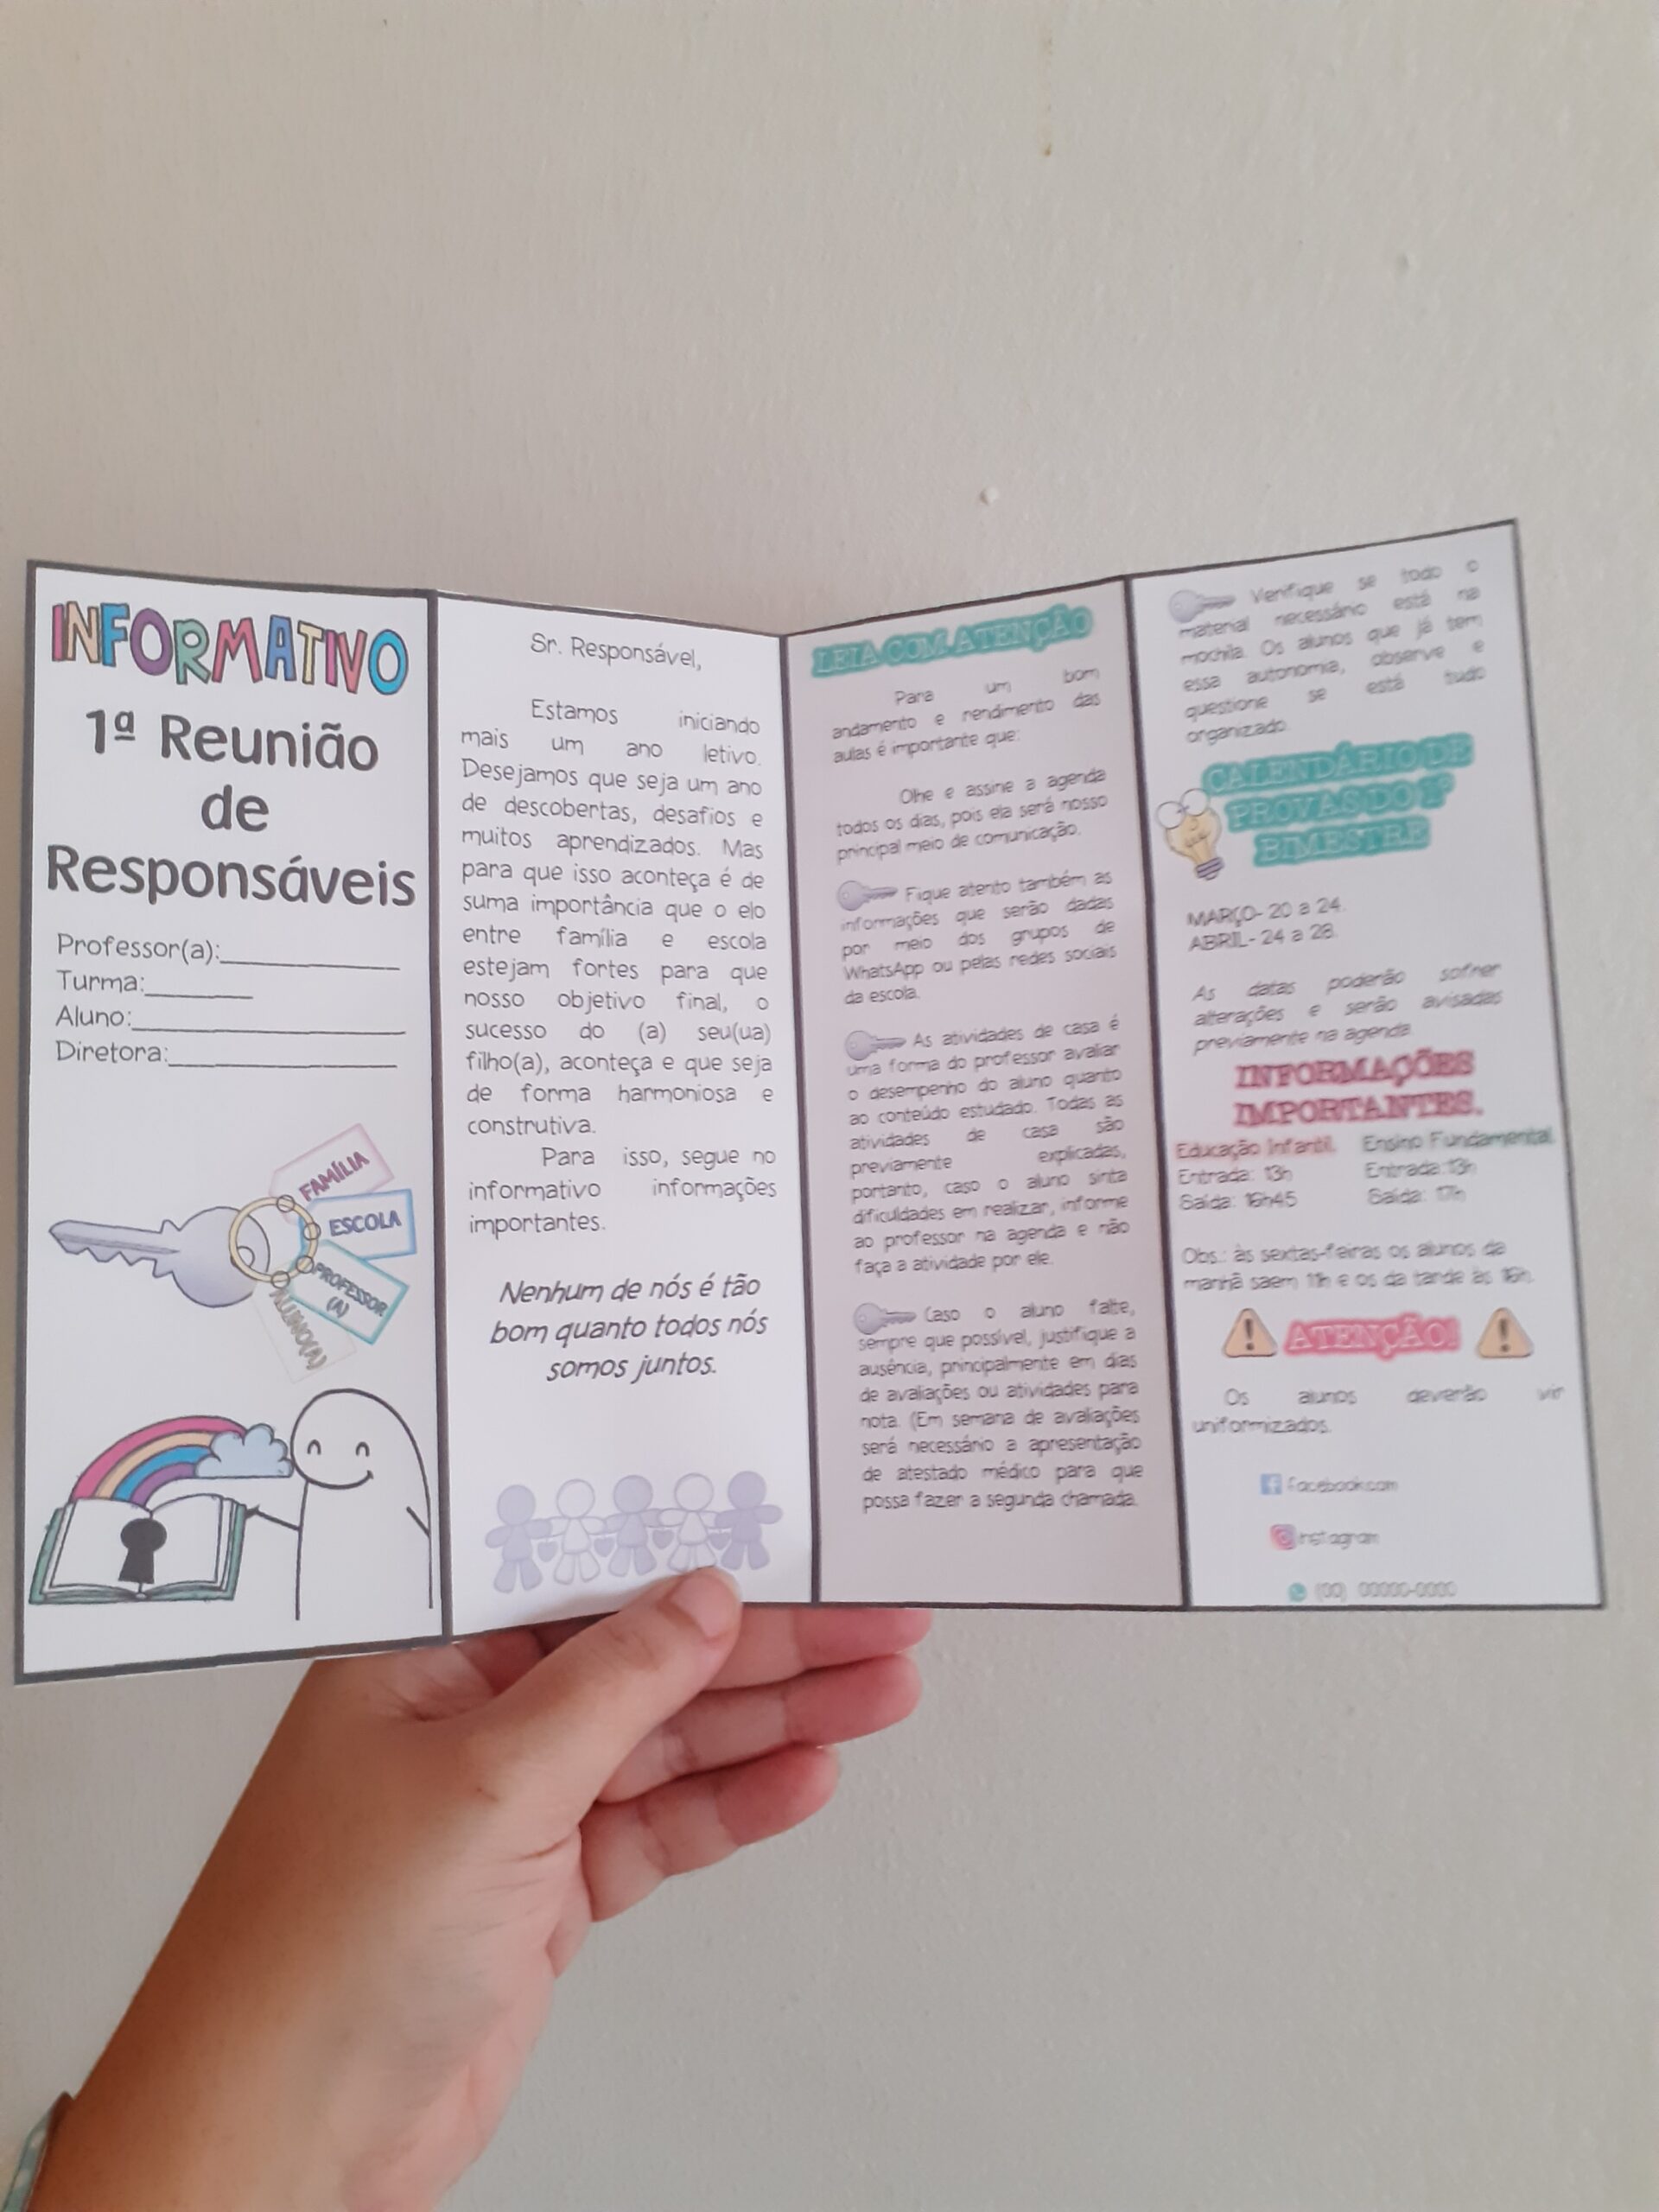 INFORMATIVO
1ª Reunião
de
Responsáveis
Professor(a):____________
Turma:_______
Aluno:__________________
Diretora:_______________
FAMÍLIA
ESCOLA
PROFESSOR
(A)
ALUNO(A)
Sr. Responsável,
Estamos iniciando
mais um ano letivo.
Desejamos que seja um ano
de descobertas, desafios e
muitos aprendizados. Mas
para que isso aconteça é de
suma importância que o elo
entre família e escola
estejam fortes para que
nosso objetivo final, o
sucesso do (a) seu(ua)
filho(a), aconteça e que seja
de forma harmoniosa e
construtiva.
Para isso, segue no
informativo informações
importantes.
Nenhum de nós é tão
bom quanto todos nós
somos juntos.
LEIA COM ATENÇÃO
Para um bom
andamento e rendimento das
aulas é importante que:
Olhe e assine a agenda
todos os dias, pois ela será nosso
principal meio de comunicação.
Fique atento também as
informações que serão dadas
por meio dos grupos de
WhatsApp ou pelas redes sociais
da escola.
As atividades de casa é
uma forma do professor avaliar
o desempenho do aluno quanto
ao conteúdo estudado. Todas as
atividades de casa são
previamente explicadas,
portanto, caso o aluno sinta
dificuldades em realizar, informe
ao professor na agenda e não
faça a atividade por ele.
Caso o aluno falte,
sempre que possível, justifique a
ausência, principalmente em dias
de avaliações ou atividades para
nota. (Em semana de avaliações
será necessário a apresentação
de atestado médico para que
possa fazer a segunda chamada.
Verifique se todo o
material necessário está na
mochila. Os alunos que já tem
essa autonomia, observe e
questione se está tudo
organizado.
CALENDÁRIO DE
PROVAS DO 1º
BIMESTRE
MARÇO- 20 a 24.
ABRIL- 24 a 28.
As datas poderão sofrer
alterações e serão avisadas
previamente na agenda
INFORMAÇÕES
IMPORTANTES.
Educação Infantil. Ensino Fundamental.
Entrada: 13h Entrada:13h
Saída: 16h45 Saída: 17h
Obs.: às sextas-feiras os alunos da
manhã saem 11h e os da tarde às 16h.
ATENÇÃO!
Os alunos deverão vir
uniformizados.
Facebook.com
Instagram
(00) 00000-0000